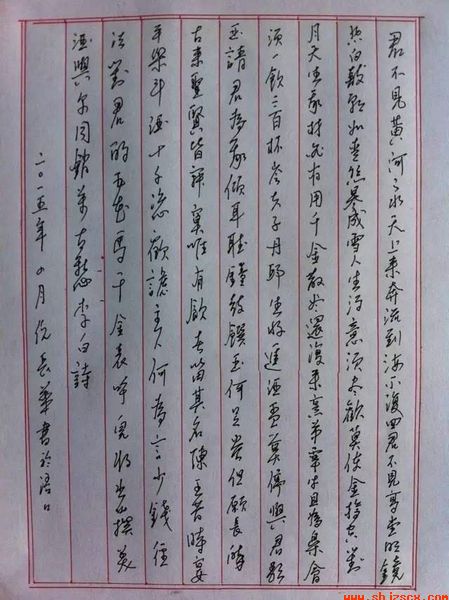 君不見黃河之水天上來奔流到海不復回君不見高堂明鏡
悲白髮朝如青絲暮成雪人生得意須盡歡莫使金樽空對
月天生我材必有用千金散盡還復來烹羊宰牛且為樂會
須一飲三百杯岑夫子丹邱生將進酒盃莫停與君歌
請君為我傾耳聽鐘鼓饌玉何足貴但願長醉
古來聖賢皆寂寞唯有飲者留其名陳王昔時宴
平樂斗酒十千恣歡謔主人何為言少錢徑
沽對君酌五花馬千金裘呼兒將出換美
酒與爾同銷萬古愁李白詩
二〇一五年月長華書於
www.shizscx.com